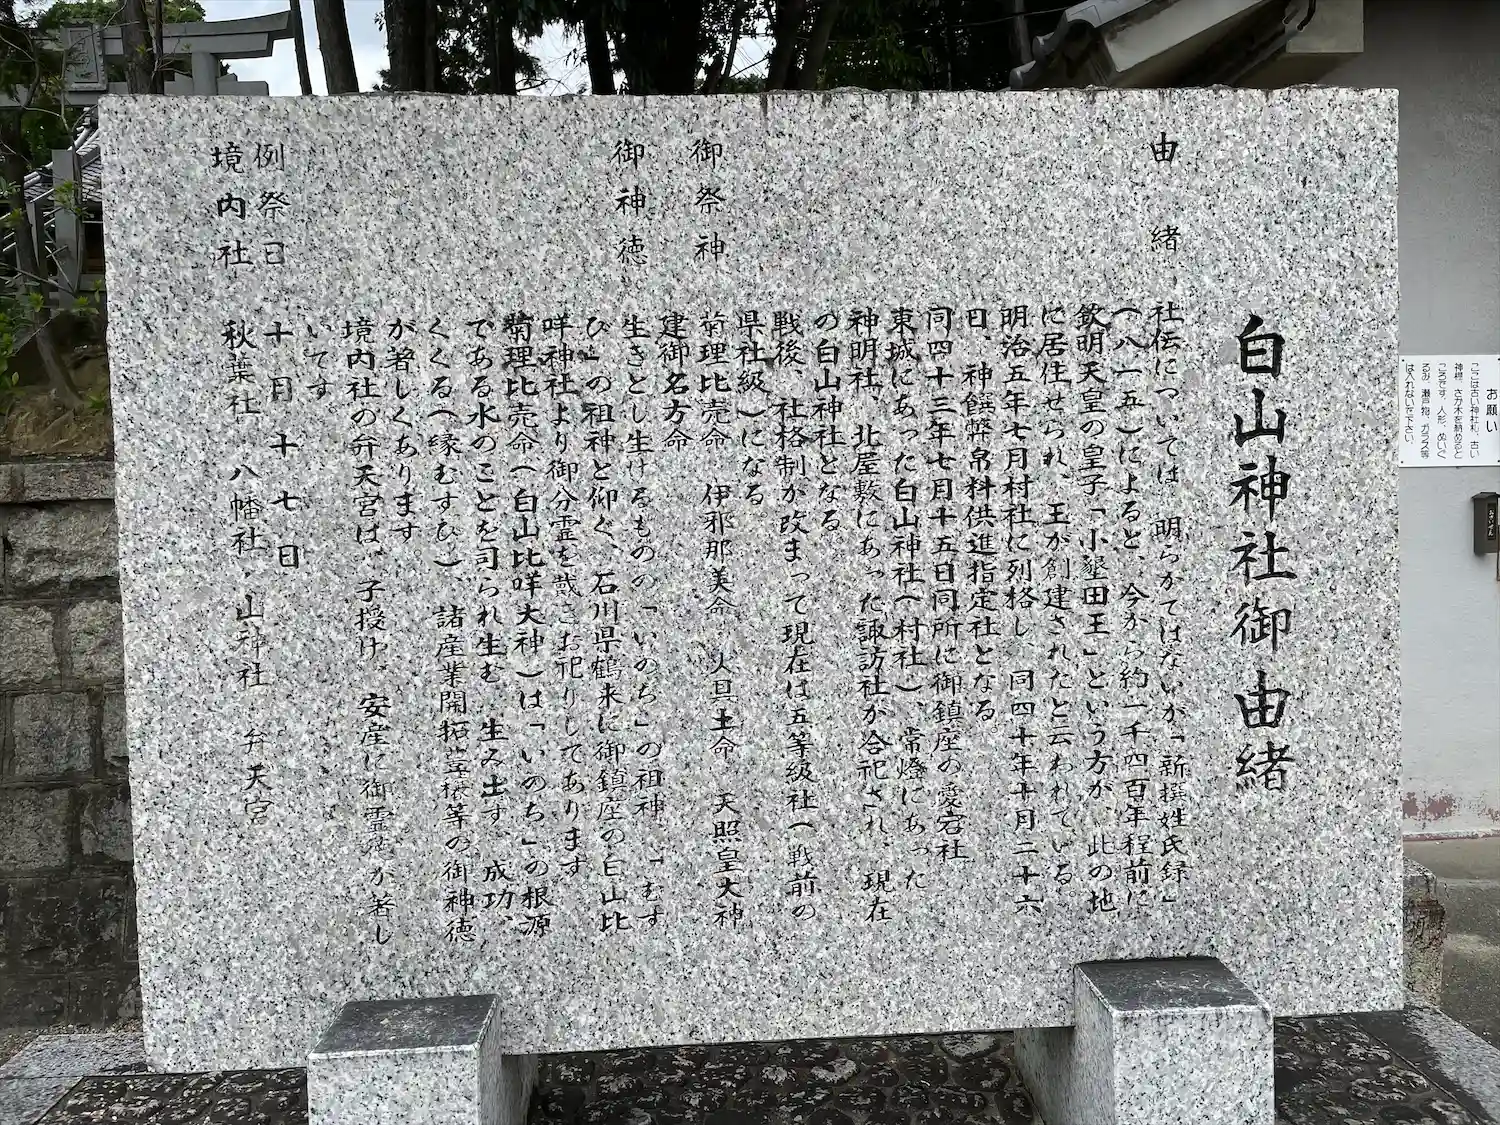 白山神社御由緒
由緒
社伝については、明らかではないが「新撰姓氏録」
(八一五)によると、今から約一千四百年程前に
欽明天皇の皇子「小墾田王」という方が、此の地
に居住せられ、王が創建されたと云われている
明治五年七月村社に列格し、同四十年十月二十六
日、神饌幣帛料供進指定社となる
同四十三年七月十五日同所に御鎮座の愛宕社
東城にあった白山神社(村社)、常燈にあった
神明社、北屋敷にあった諏訪社が合祀され、現在
の白山神社となる
戦後、社格制が改まって現在は五等級社(戦前の
県社級)になる
御祭神
菊理比売命 伊邪那美命 火具土命 天照皇大神
建御名方命
御神徳
生きとし生けるものの「いのち」の祖神、「むす
び」の祖神と仰ぐ、石川県鶴来に御鎮座の白山比
咩神社より御分霊を戴きお祀りしてあります
菊理比売命(白山比咩大神)は「いのち」の根源
である水のことを司られ生む、生み出す、成功、
くくる(縁むすび)、諸産業開拓等の御神徳
が著しくあります
境内社の弁天宮は、子授け、安産に御霊が著し
いです
例祭日
十月十七日
境内社
秋葉社 八幡社 山神社 弁天宮
お願い
ここは古い神社札、古い
神棚、さか木を納めると
ころです。人形、ぬいぐ
るみ、瀬戸物、ガラス等
は入れないで下さい。